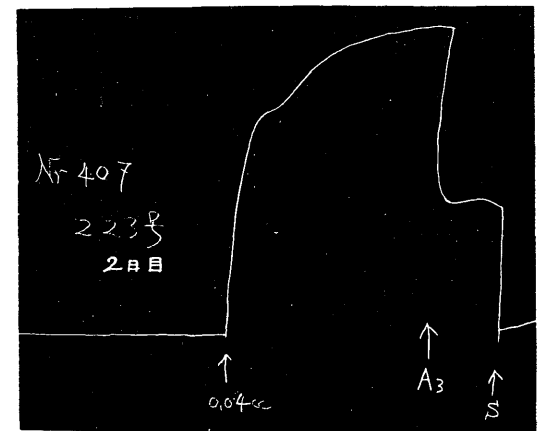 Nr 407
223号
2日目
0.04cc
A3
S